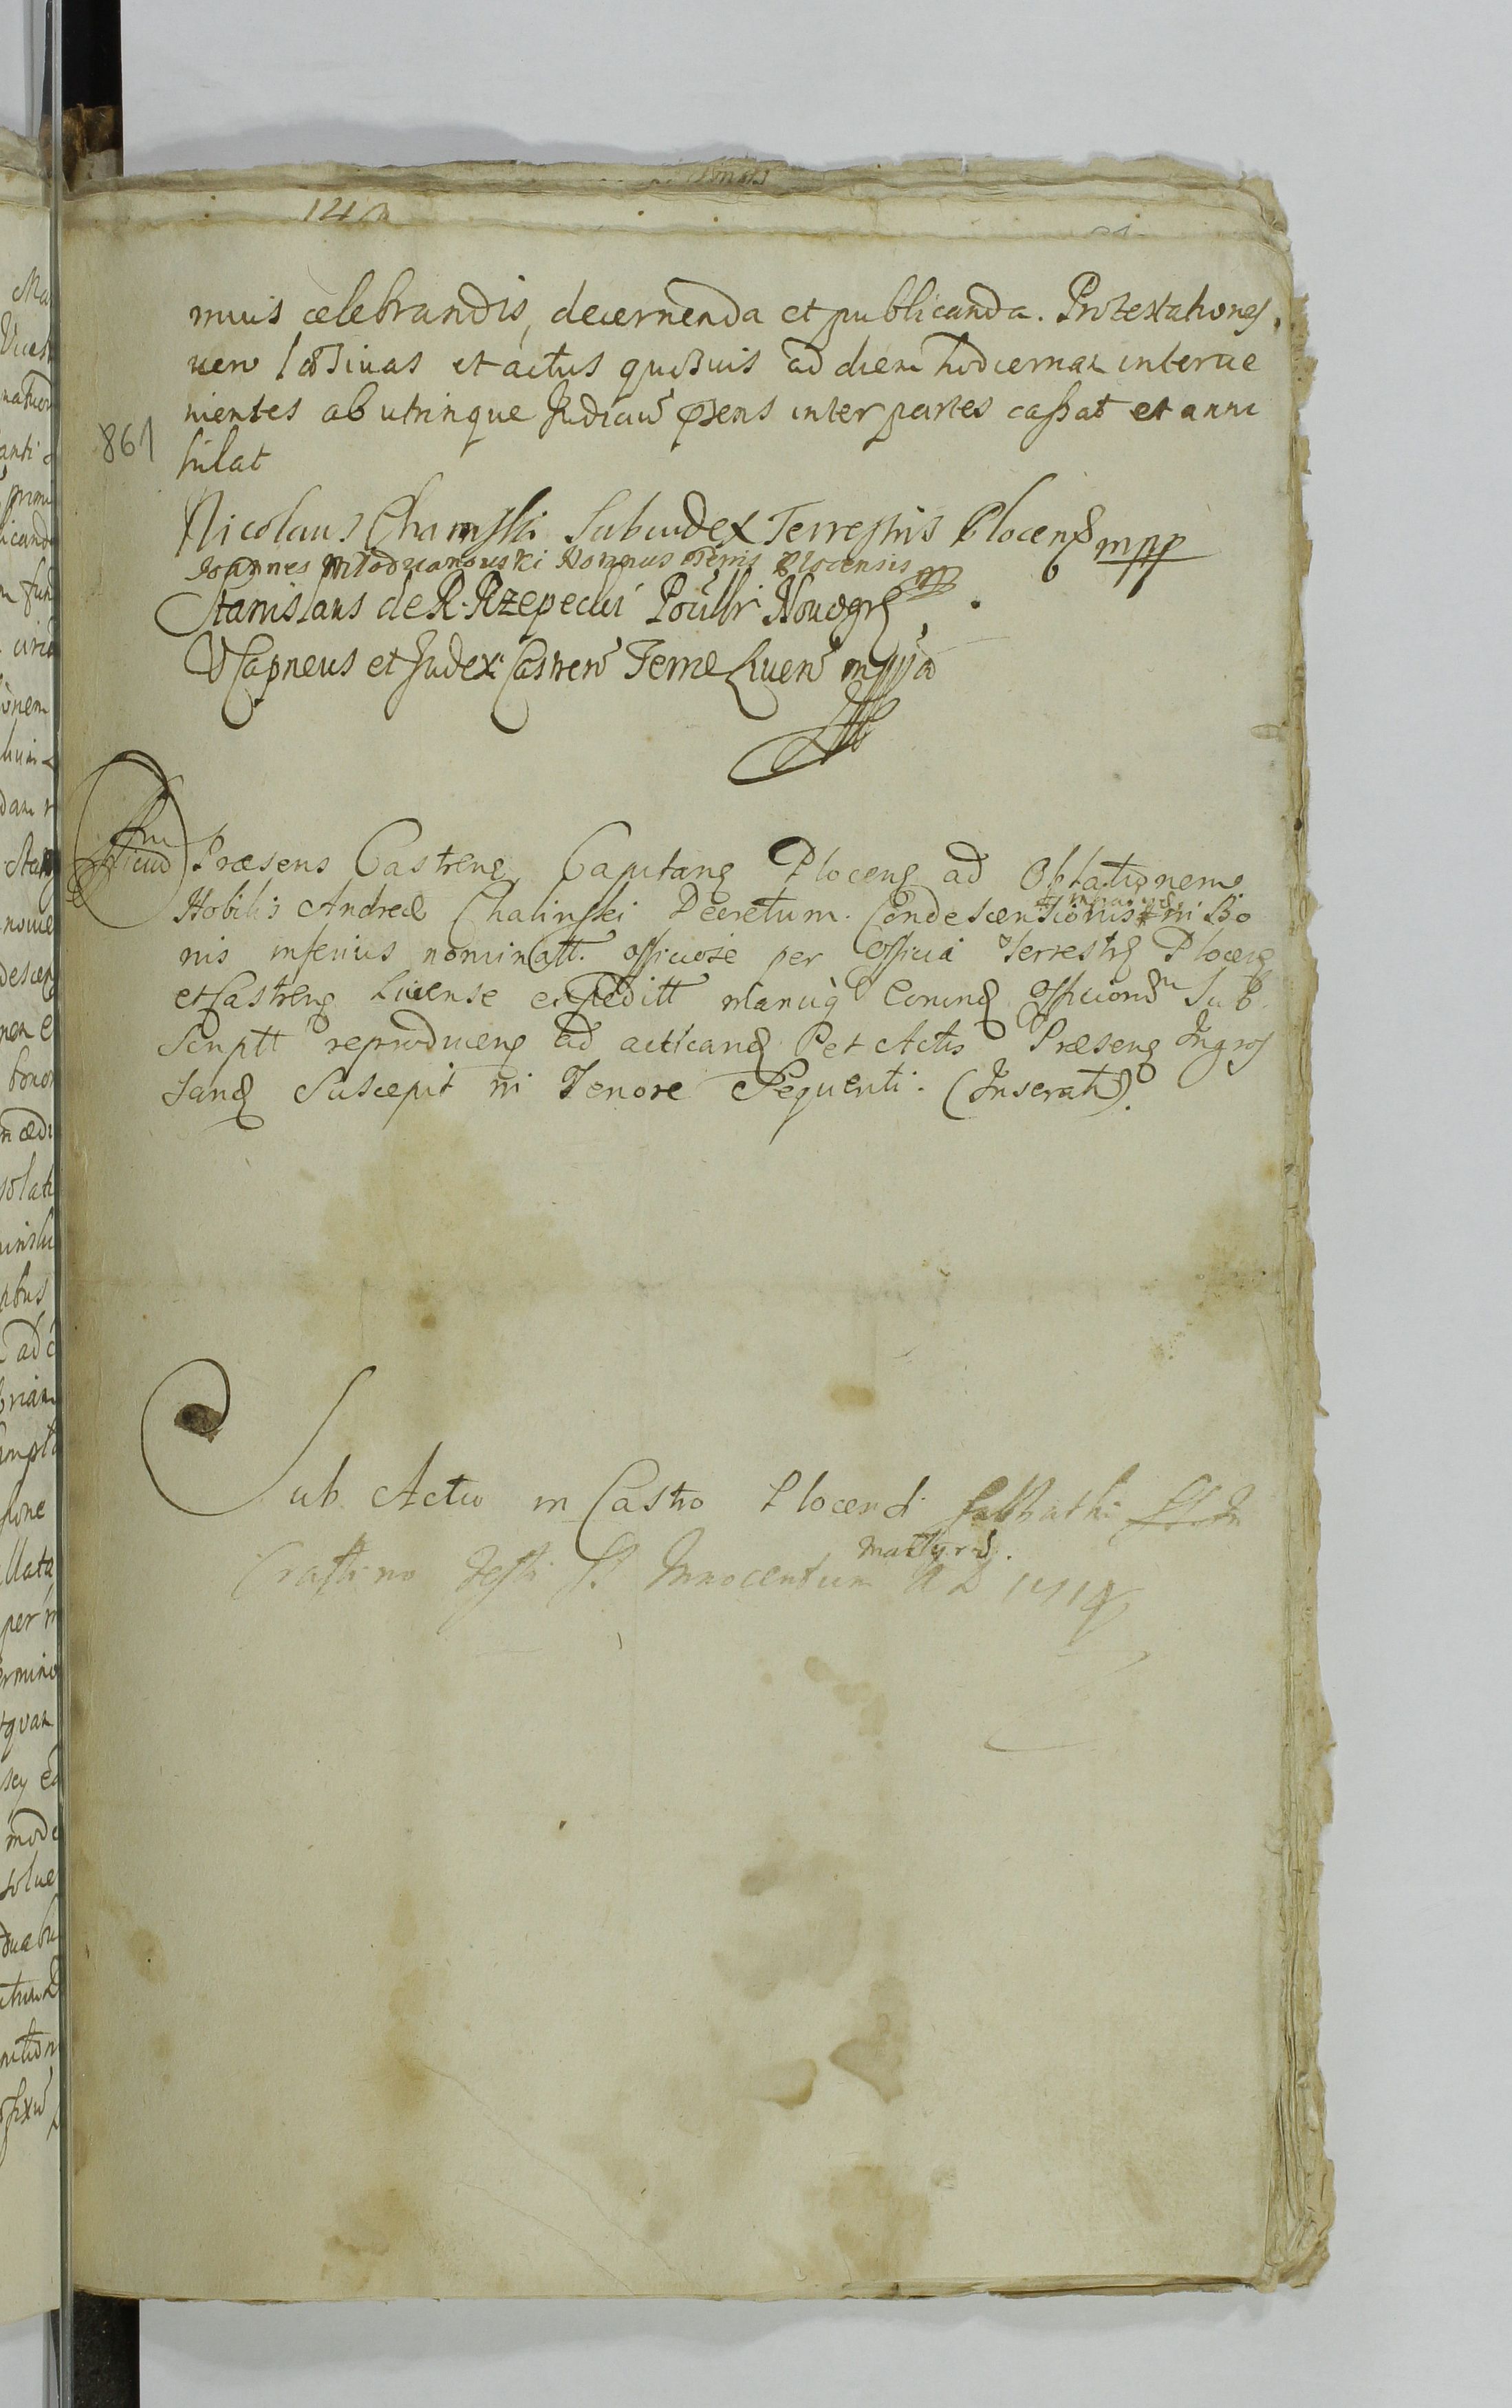 muis celebrandis, decernenda et publicanda. Protestationes
vero læsivas et actus quosvis ad diem hodiernam interve
nientes ab utrinque Judiciu præsens inter partes cassat et anni
861
hilat
Nicolaus Chamski Subiudex Terrestris Plocens mpp
Joannes Mlodzianowski Nottarius Terris Plocensis mp
Stanislaus de R. Rzepecki Pocill Novogr
VCapneus et Judex Castren Terræ Liven mppa
Officiu Præsens Castren Capitan Plocen ad Oblationem
Nobilis Andreæ Chalinski Decretum Condescensionis in Bo
nis inferius nominatt. officiose per Officia Terrestr Plocen
et Castren Livense expeditt manuq eorund Officior Sub
Scriptt reproducen ad acticand Pet Actis Præsen Ingros
sand Suscepit in Tenore Sequenti. (Inserat).
Sub Actu in Castro Plocensi Sabbathi In
Martyru.
Crastino Festi SS Innocentum A D